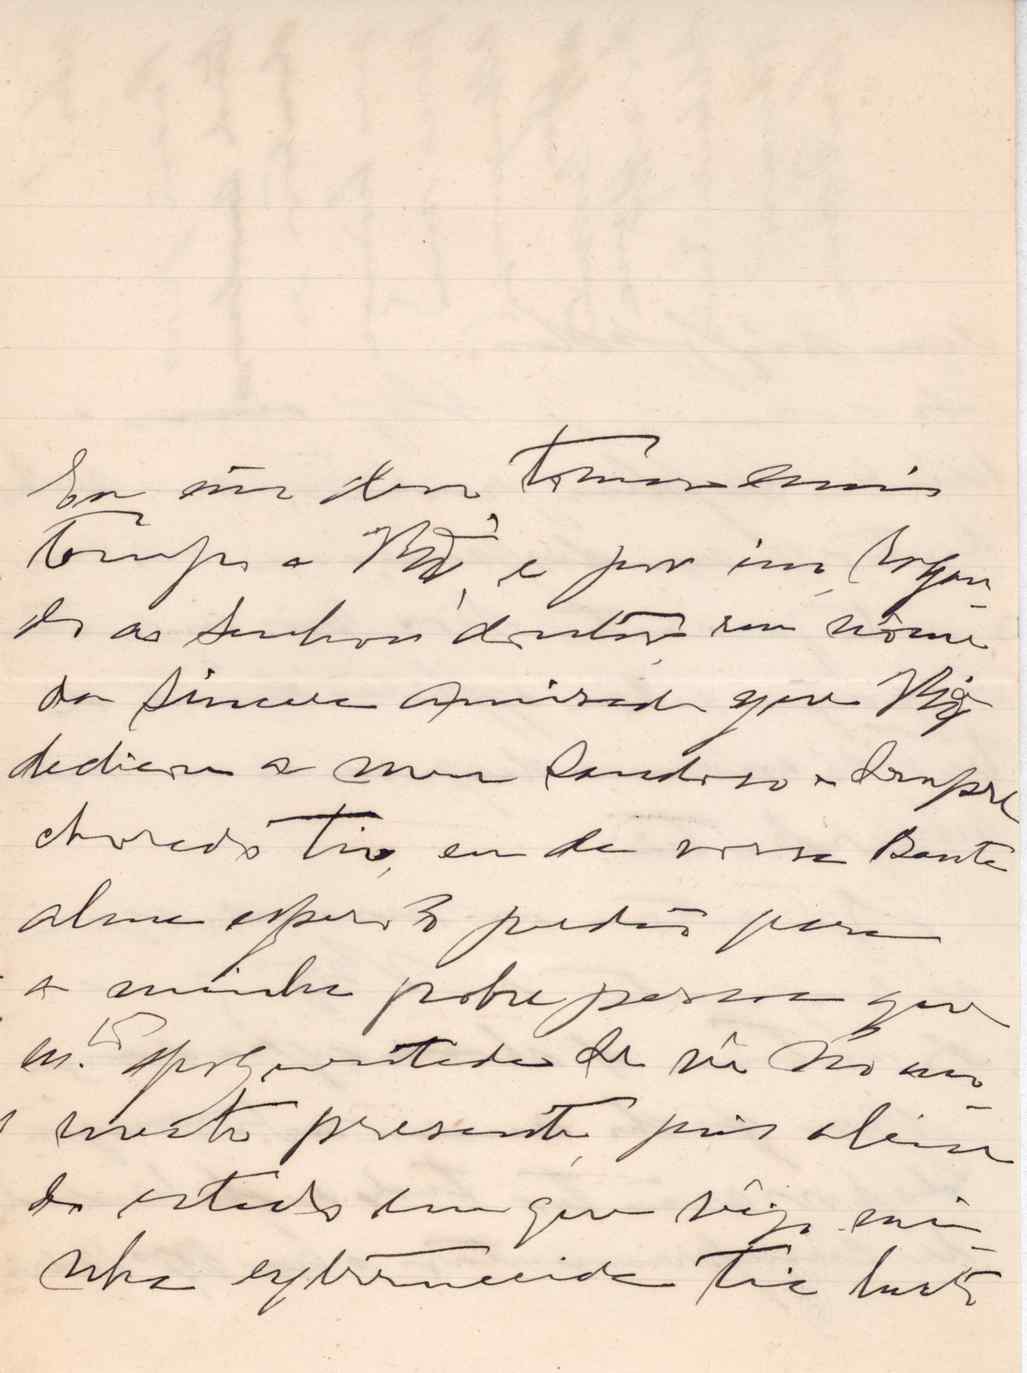 Eu não devo tomar mais
tempo a V. Ex.ª, e por isso, rogan
do ao Senhor doutor em nome
da sincera amisade que V. Ex.ª
dedicou a meu saudoso e sempre
chorado Tio, eu da vossa Santa
alma espero perdão para
a minha pobre pessoa que
m.to apoquentada se vê no mo
mento presente, pois além
do estado em que vejo mi
nha extremecida Tia lucto